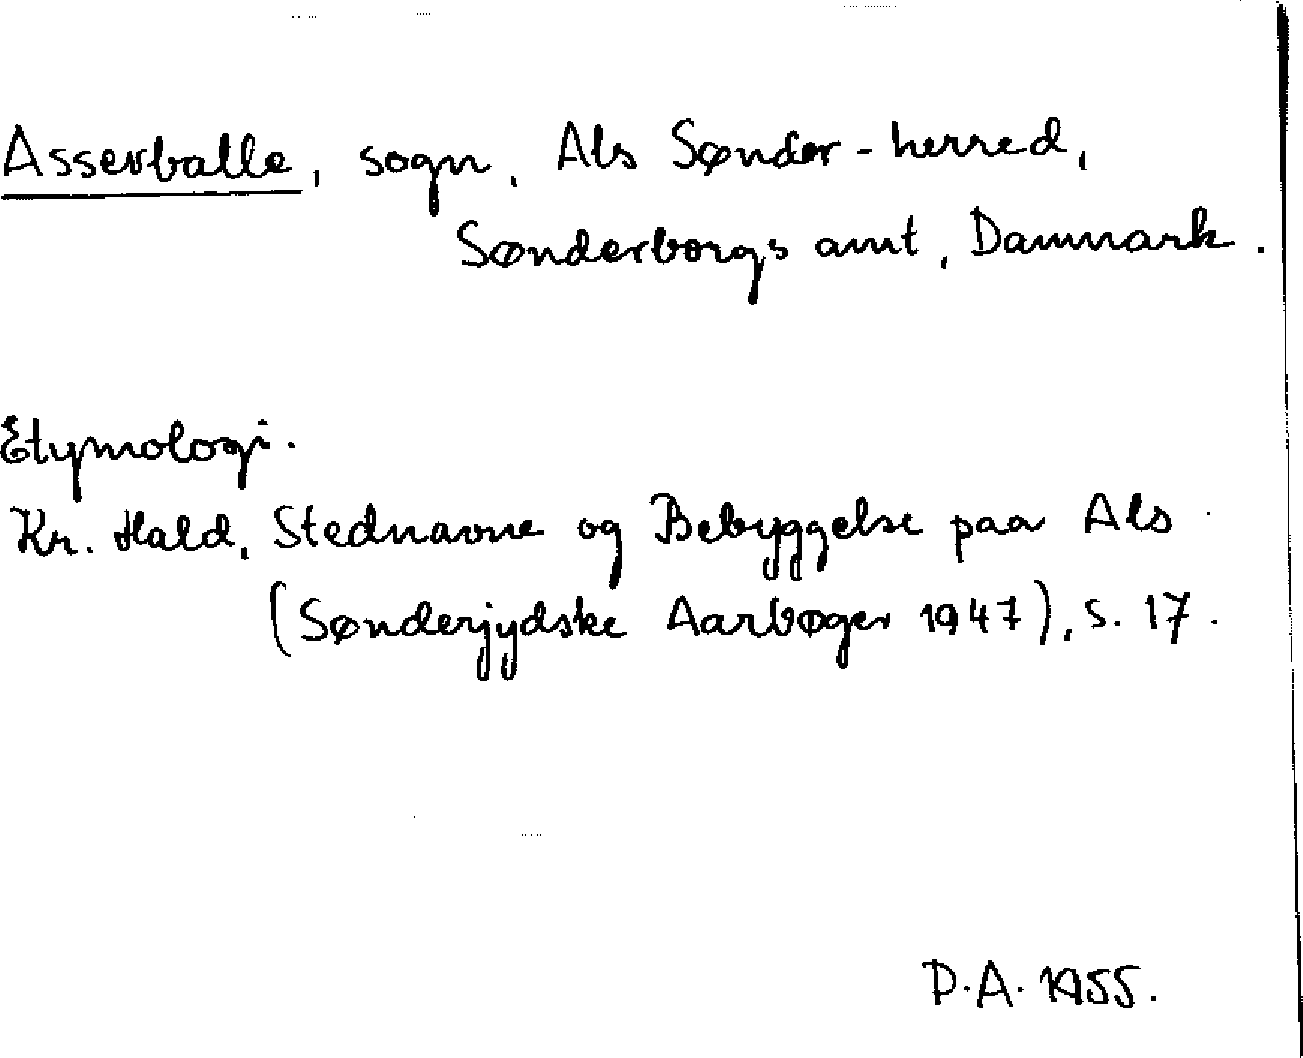 Asserballe, sogn, Als Sønder-herred,
Sønderborgs amt, Danmark.
Etymologi.
Kr. Hald, Stednavne og Bebyggelse paa Als
(Sønderjydske Aarbøger 1947), s. 17.
P.A. 1955.